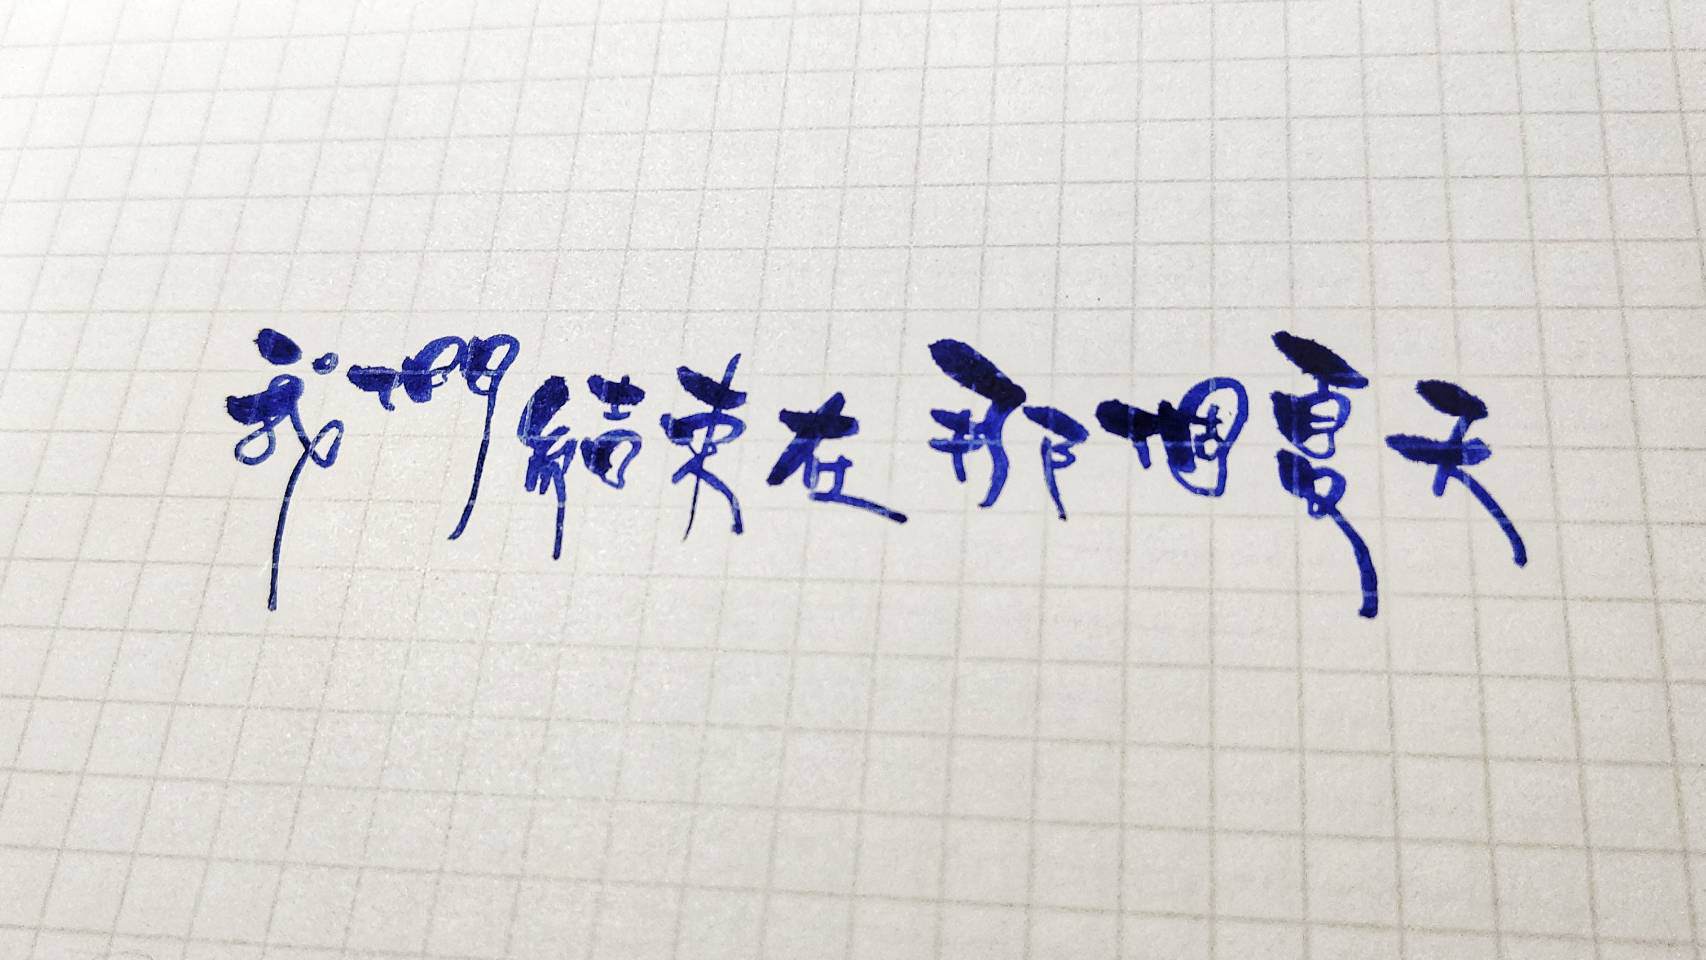 我們結束在那個夏天